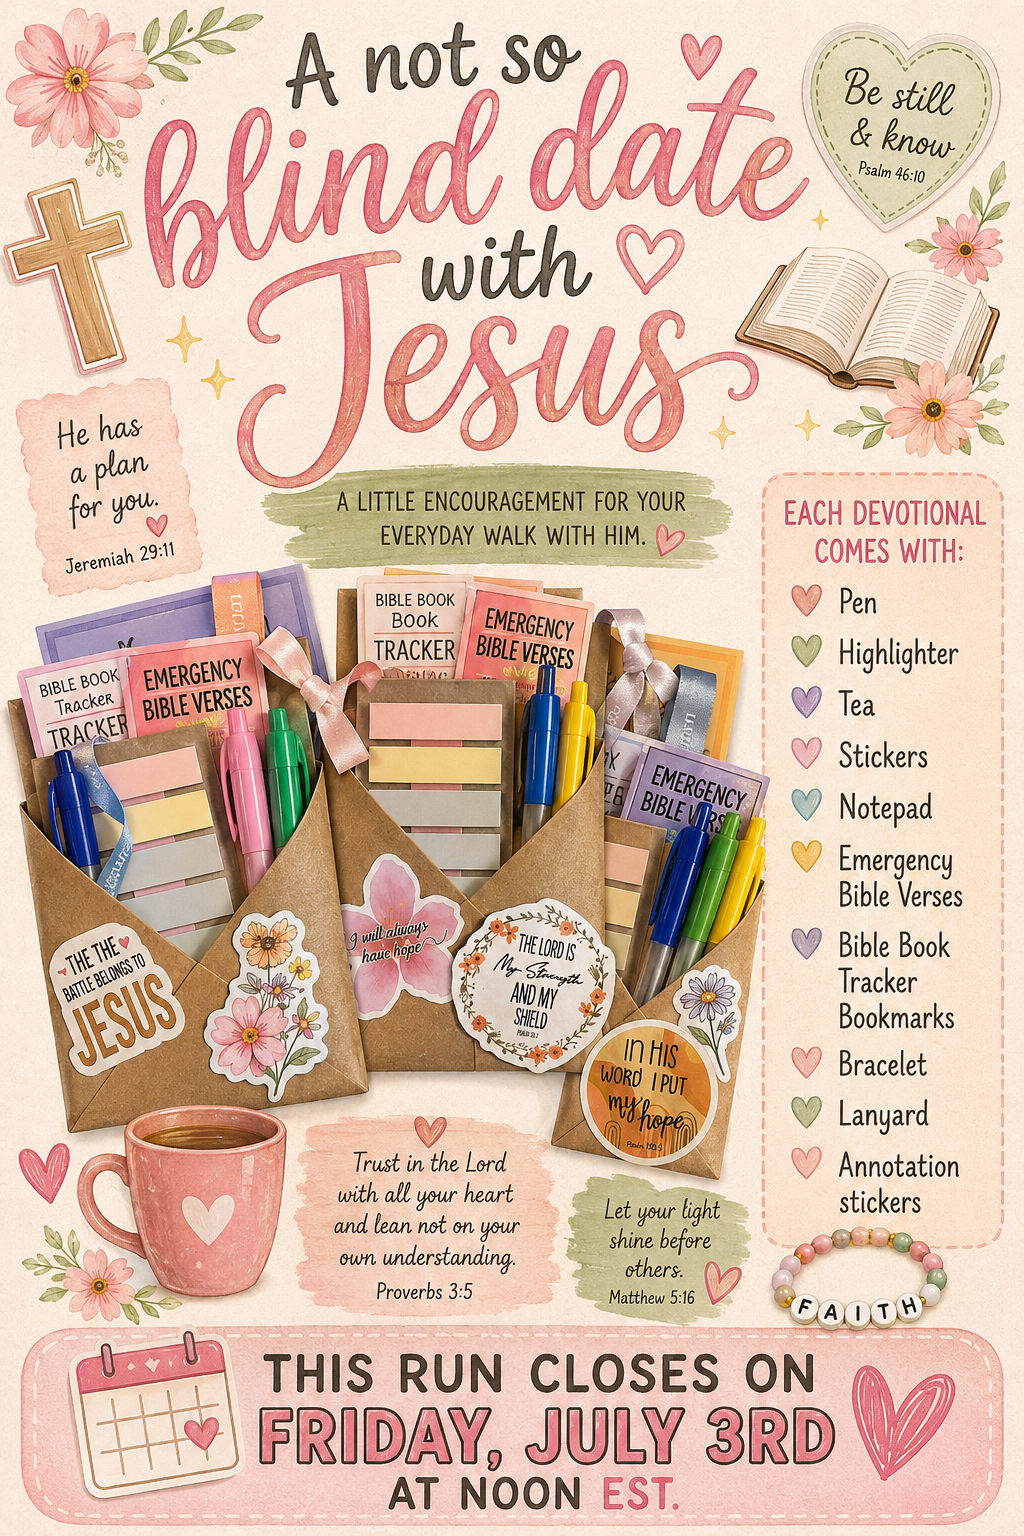 A not so
blind date
with
Jesus
Be still
& know
Psalm 46:10
He has
a plan
for you.
Jeremiah 29:11
A LITTLE ENCOURAGEMENT FOR YOUR
EVERYDAY WALK WITH HIM.
EACH DEVOTIONAL
COMES WITH:
Pen
Highlighter
Tea
Stickers
Notepad
Emergency
Bible Verses
Bible Book
Tracker
Bookmarks
Bracelet
Lanyard
Annotation
stickers
BIBLE BOOK
Tracker
TRACKER
EMERGENCY
BIBLE VERSES
BIBLE BOOK
BOOK
TRACKER
EMERGENCY
BIBLE VERSES
EMERGENCY
BIBLE VERSES
THE THE
BATTLE BELONGS TO
JESUS
I will always
have hope
THE LORD IS
My Strength
AND MY
SHIELD
PSALM 28:7
IN HIS
WORD I PUT
my hope
Trust in the Lord
with all your heart
and lean not on your
own understanding.
Proverbs 3:5
Let your light
shine before
others.
Matthew 5:16
FAITH
THIS RUN CLOSES ON
FRIDAY, JULY 3RD
AT NOON EST.